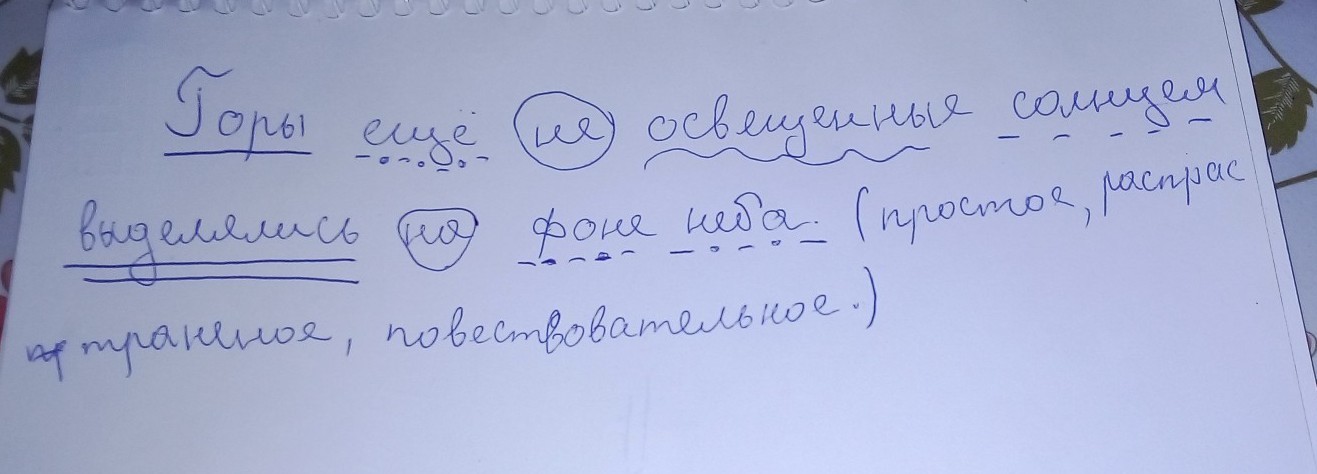 Горы ещё не освещенные солнцем
выделялись на фоне неба. (простое, распрас
транёное, повествовательное.)